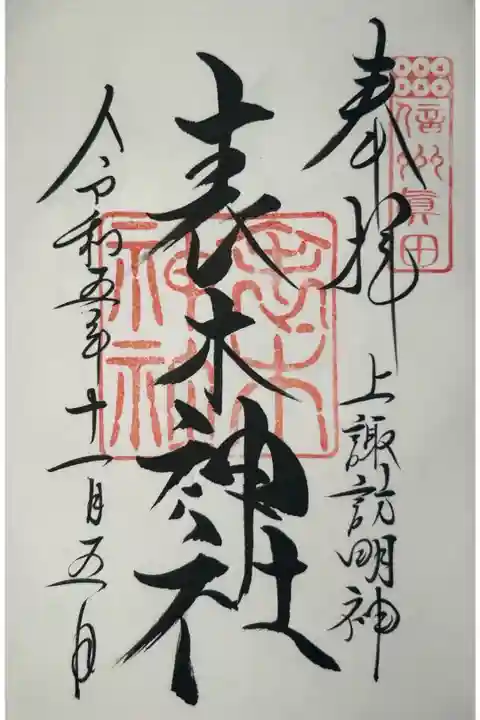 信州眞田
奉拝
上諏訪明神
表木神社
表木
神社
令和五年十一月五日